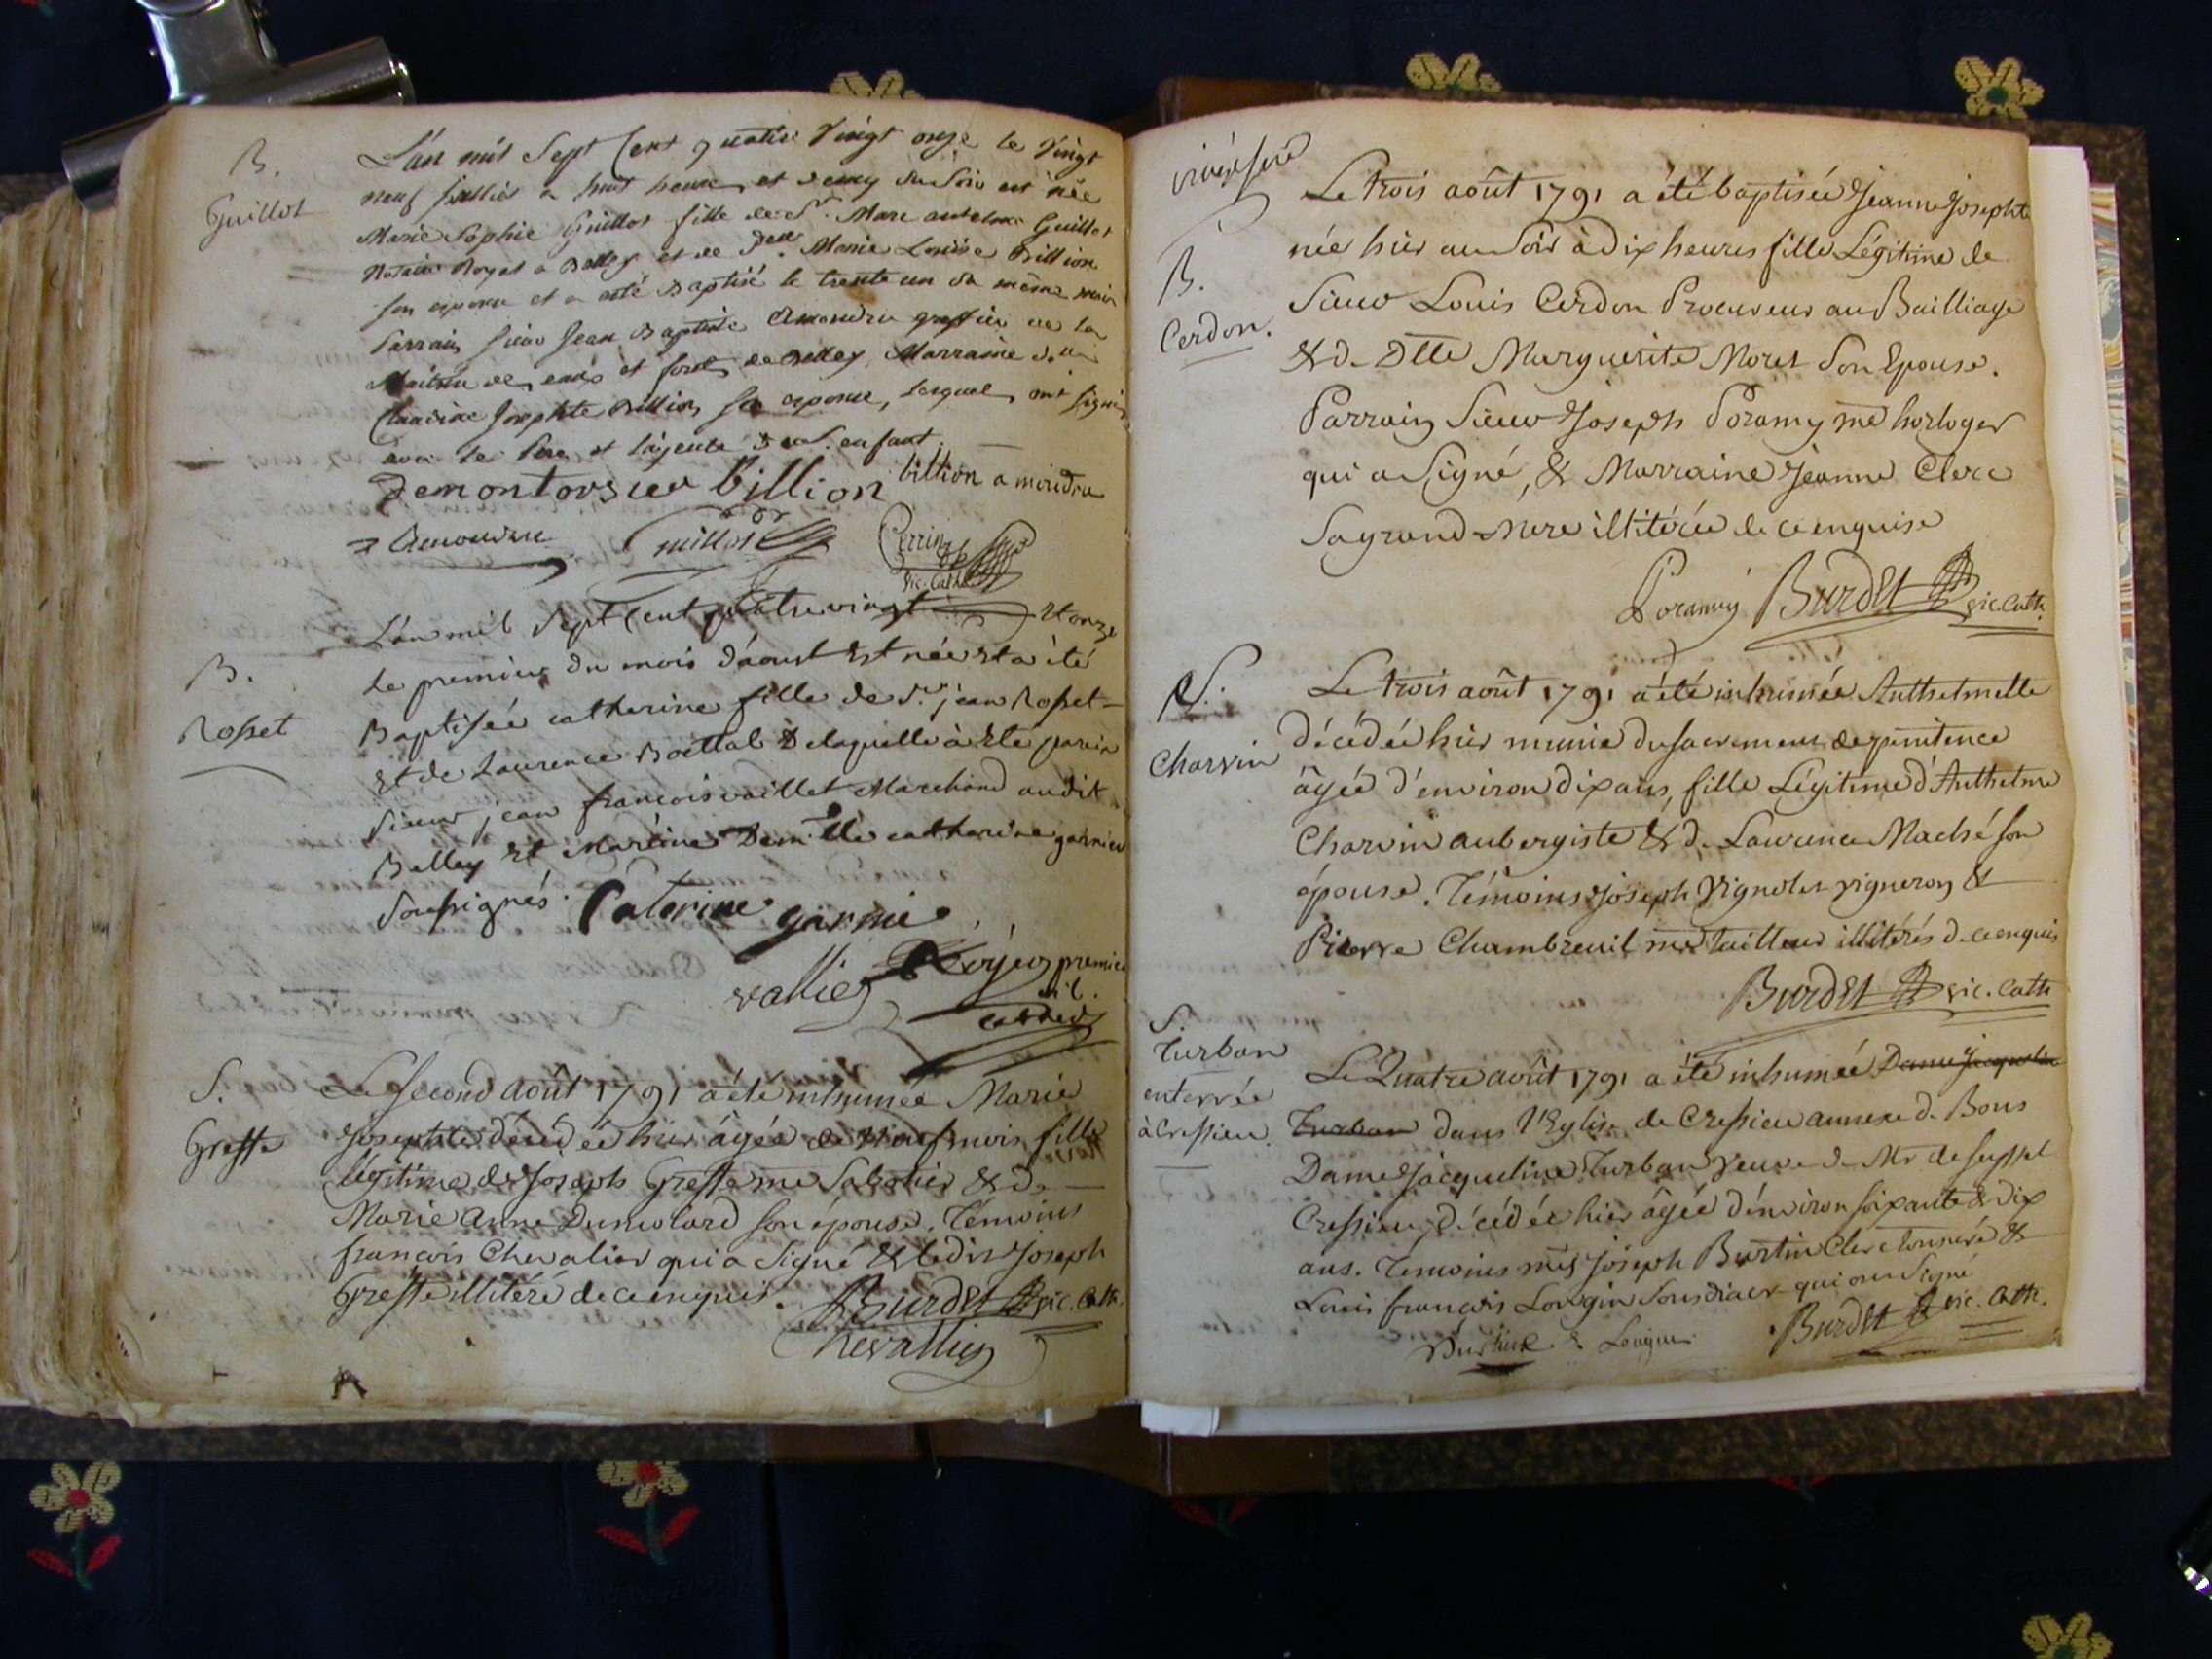 B.
Guillot
L'an mil Sept Cent quatre Vingt onze le Vingt
neuf juillet a huit heure et demy du Soir est née
Marie Sophie Guillot fille de Sr. Marc antelme Guillot
Notaire Royal a Belley et de Delle. Marie Louise Billion
son epouse et a eté Baptisé le trente un du même mois
Parrain sieur Jean Baptiste Amoudru greffier de la
Maitrise des eaux et forets de Belley Marraine
Claudine Josephte Billion sa epouse, lesquels ont signés
avec le Pere et enfant.
demontorsier billion billion amoudru
Amoudru Guillot Perrin
vic. Cath.
B.
Rosset
L'an mil Sept Cent quatre vingt Et onze
le premier du mois d'aoust Est née Et a été
Baptisée catherine fille de Sr. jean Rosset
Et de Laurence Bottal De laquelle à Eté parein
Sieur jean francois vaillet Marchand audit
Belley Et Mareine Demlle catherine garnier
Soussignés. Caterine garnie
vallier premier
vic.
S.
Greffe
Le Second août 1791 a été inhumée Marie
Josephte décédée hier âgée de neuf mois fille
légitime de Joseph Greffe me Sabotier & de
Marie anne Dumolard son épouse. Témoins
françois Chevalier qui a Signé & ledit Joseph
Greffe illitéré de ce enquis. Burdet vic. Cath.
Chevallier
B.
Cerdon.
Le trois août 1791 a été baptisée Jeanne Josephte
née hier au Soir à dix heures fille Légitime de
Sieur Louis Cerdon Procureur au Bailliage
& de Dlle Marguerite Moret Son Epouse.
Parrain Sieur Joseph Poramy me horloger
qui a Signé, & Marraine Jeanne Clerc
Sa grand-Mere illitérée de ce enquise
Poramy Burdet vic. Cath.
S.
Charvin
Le trois août 1791 a été inhumée Anthelmette
décédée hier munie du sacrement de penitence
âgée d'environ dix ans, fille Légitime d'Anthelme
Charvin aubergiste & de Laurence Maché son
épouse. Témoins Joseph Vignolet vigneron &
Pierre Chambreuil me tailleur illitérés de ce enquis
Burdet vic. Cath
S.
Turban
enterrée
à Cressieu.
Le Quatre août 1791 a été inhumée Dame Jacqueline
Turban dans l'Eglise de Cressieu annexe de Bons
Dame Jacqueline Turban veuve de Mr de Seyssel
Cressieu, décédée hier âgée d'environ soixante & dix
ans. Temoins mes Joseph Burtin Clerc tonsuré &
Louis françois Longin Sousdiacre qui ont Signé
Burtin Longin Burdet vic. Cath.